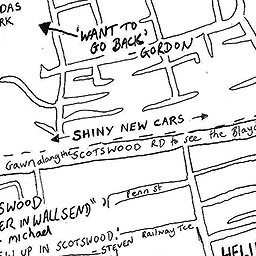 DAS
RK
'WANT TO
GO BACK'
GORDON
SHINY NEW CARS
Gawn along the SCOTSWOOD RD to see the Blayd
Penn St
SWOOD
ER IN WALLSEND"
- michael
Railway Tce
EW UP IN SCOTSWOOD.'
- STEVEN
HELI